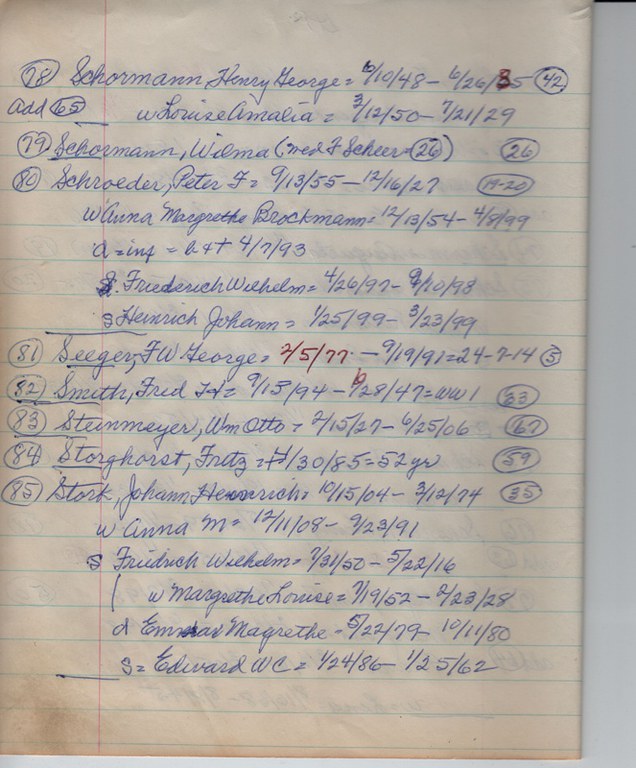 (78) Schormann, Henry George = 10/10/48 - 6/26/35 (42)
add (65) w Louise Amalia = 3/12/50 - 7/21/29
(79) Schormann, Wilma (med F Scheer = (26)) (26)
(80) Schroeder, Peter F = 9/13/55 - 12/16/27
w Anna Margrethe Brockmann = 12/13/54 - 4/8/99
d = inf = b + + 4/7/93
s. Friederich Wilhelm = 4/26/97 - 9/10/98
s Heinrich Johann = 1/25/99 - 3/23/99
(81) Seeger, F W George = 2/5/77 - 9/19/91 = 24-7-14 (5)
(82) Smith, Fred = 9/15/94 - /28/47 = WW 1 (33)
(83) Steinmeyer, Wm Otto = 2/15/27 - 6/25/06 (67)
(84) Storghorst, Fritz = /30/85 = 52 yr (59)
(85) Stork, Johann Heinrich = 10/15/04 - 3/12/74 (35)
w Anna M = 12/11/08 - 9/23/91
s Friedrich Wilhelm = 7/31/50 - 5/22/16
w Margrethe Louise = 7/19/52 - /23/28
d Magrethe = 5/22/79 - 10/11/80
s = Edward WC = 1/24/86 - 1/25/62